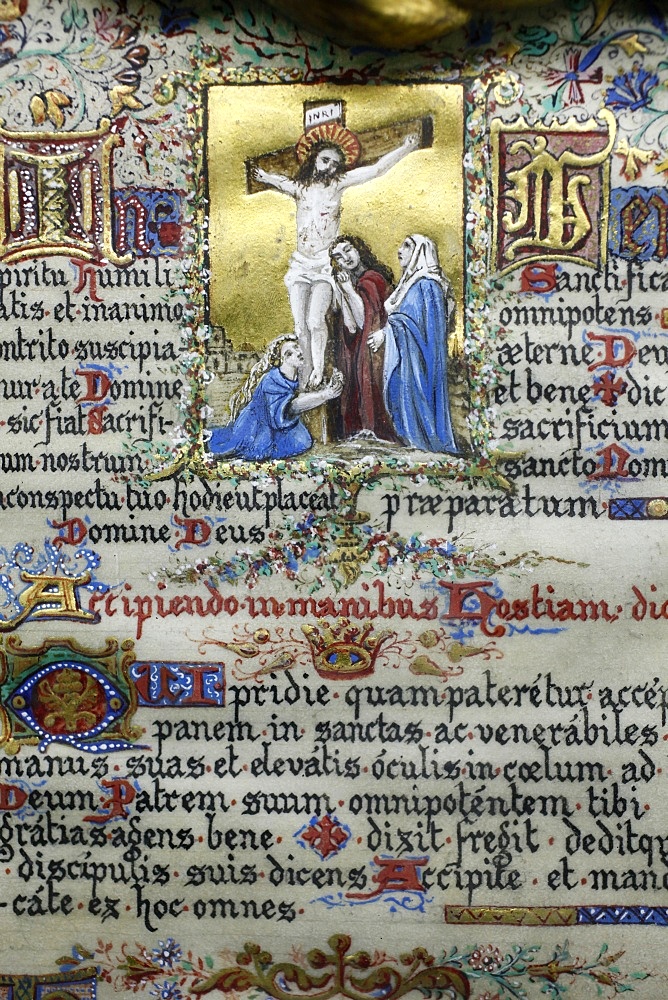 INRI
In
piritu humili
atis et inanimo
ontrito suscipia
mur a te Domine
sic fiat Sacrifi-
um nostrum
nconspectu tuo hodie ut placeat
Domine Deus.
Ven
Sanctifica
omnipotens
æterne Deu
et bene ✠ dic
sacrificium
sancto Nom
præparatum.
Accipiendo in manibus Hostiam. dic
QUI pridie quam paterétur accep
panem in sanctas ac venerábiles
manus suas et elevátis óculis in cœlum ad
Deum Patrem suum omnipoténtem tibi
grátias agens bene ✠ dixit fregit deditqu
discípulis suis dicens Accipite et mandu
-cáte ex hoc omnes.